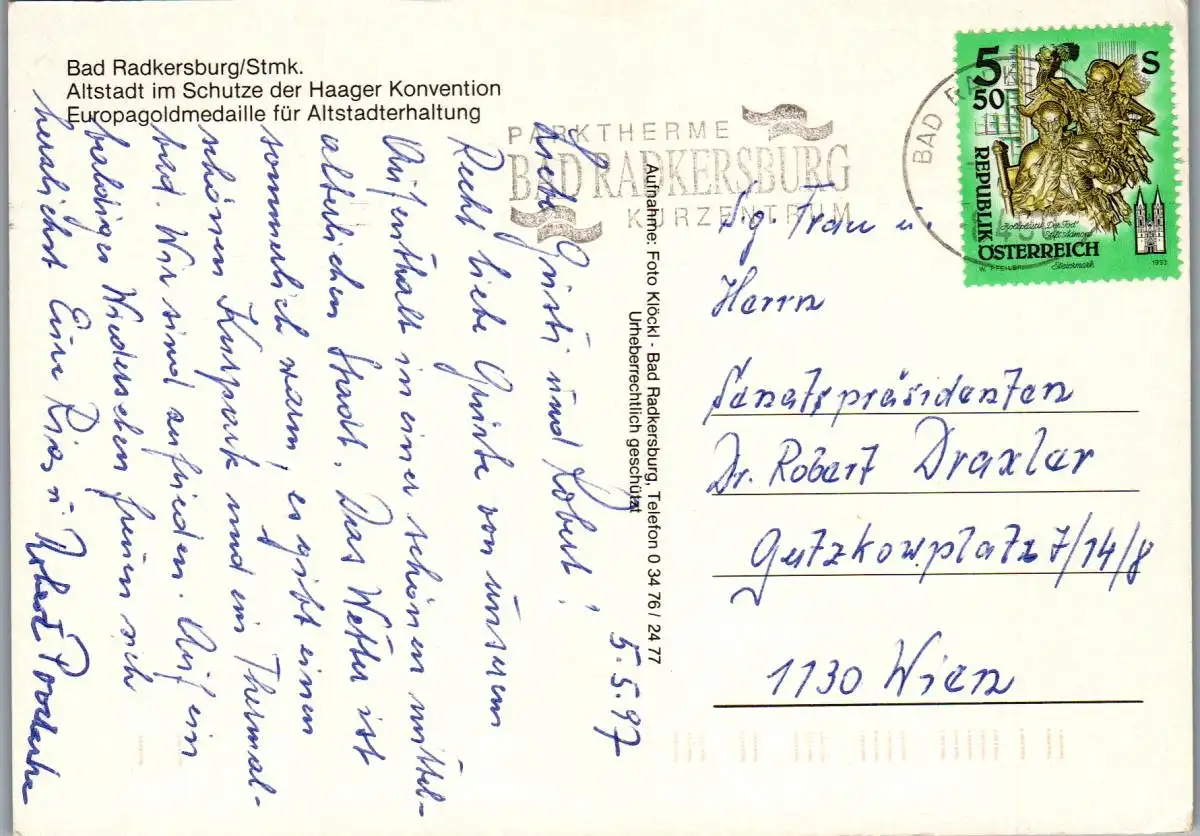 Bad Radkersburg/Stmk.
Altstadt im Schutze der Haager Konvention
Europagoldmedaille für Altstadterhaltung
PARKTHERME
BAD RADKERSBURG
KURZENTRUM
BAD RADKE
5 50 S
REPUBLIK
ÖSTERREICH
W. PFEILER
Steiermark
1993
5.5.97
Liebe Gusti und Robert!
Recht liebe Grüße von unserem
Aufenthalt in einer schönen mittel-
alterlichen Stadt. Das Wetter ist
sommerlich warm, es gibt einen
schönen Kurpark und ein Thermal-
bad. Wir sind zufrieden. Auf ein
baldiges Wiedersehen freuen sich
herzlichst Eure u. Robert
Aufnahme: Foto Klöckl - Bad Radkersburg, Telefon 0 34 76 / 24 77
Urheberrechtlich geschützt
Sg. Frau u.
Herrn
Senatspräsidenten
Dr. Robert Draxler
Gutzkowplatz 7/14/8
1130 Wien